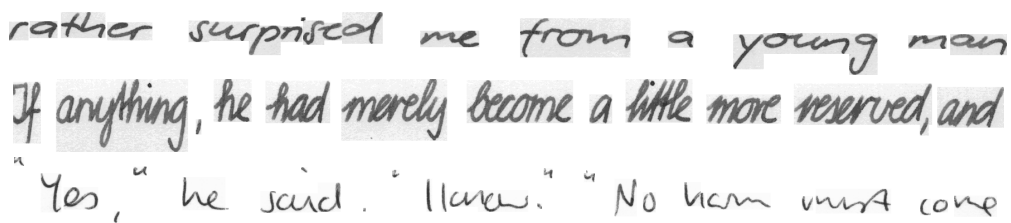 rather surprised me from a young man
If anything, he had merely become a little more reserved, and
"Yes," he said. "I know." "No harm must come